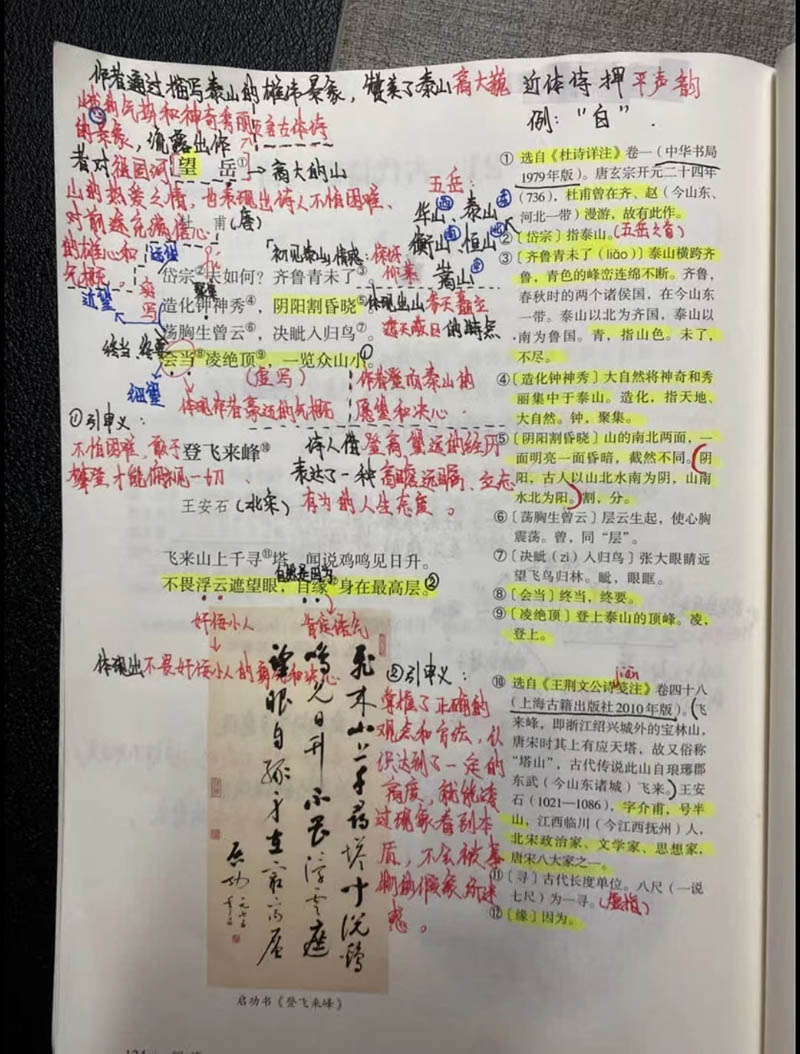 作者通过描写泰山的雄伟景象，赞美了泰山高大巍
峨的气势和神奇秀丽
的景象，流露出作
者对祖国河
山的热爱之情，也表现出诗人不怕困难、
对前途充满信心
的雄心和
气概。
近体诗押平声韵
例：“自”.
五言古体诗
望 岳①→高大的山
甫(唐)
五岳：
华山、泰山
衡山、恒山
嵩山
远望
「初见泰山情感：
仰慕
岱宗②夫如何？齐鲁青未了③。
聚集
造化钟神秀④，阴阳割昏晓⑤。
体现出山
遮天蔽日的特点
荡胸生曾云⑥，决眦入归鸟⑦。
会当⑧凌绝顶⑨，一览众山小。①
近望
实写
终当、终要
细望
(虚写)
体现作者豪迈的气概
作者登顶泰山的
愿望和决心.
①引申义：
不怕困难，敢于
攀登，才能俯视一切
登飞来峰⑩
王安石(北宋)
诗人借登高望远的经历
表达了一种高瞻远瞩、立志
有为的人生态度。
飞来山上千寻⑪塔，闻说鸡鸣见日升。
自然是因为
不畏浮云遮望眼，自缘⑫身在最高层。②
奸佞小人
肯定语气
体现出不畏奸佞小人的勇气和决心
②引申义：
掌握了正确的
观点和方法，认
识达到了一定的
高度，就能透
过现象看到本
质，不会被事
物的假象所迷
惑。
飞来山上千寻塔闻说鸡
鸣见日升不畏浮云遮
望眼自缘身在最高层
启功
启功书《登飞来峰》
① 选自《杜诗详注》卷一（中华书局
1979年版）。唐玄宗开元二十四年
（736），杜甫曾在齐、赵（今山东、
河北一带）漫游，故有此作。
②〔岱宗〕指泰山。(五岳之首)
③〔齐鲁青未了（liǎo）〕泰山横跨齐
鲁，青色的峰峦连绵不断。齐鲁，
春秋时的两个诸侯国，在今山东
一带。泰山以北为齐国，泰山以
南为鲁国。青，指山色。未了，
不尽。
④〔造化钟神秀〕大自然将神奇和秀
丽集中于泰山。造化，指天地、
大自然。钟，聚集。
⑤〔阴阳割昏晓〕山的南北两面，一
面明亮一面昏暗，截然不同。阴
阳，古人以山北水南为阴，山南
水北为阳。割，分。
⑥〔荡胸生曾云〕层云生起，使心胸
震荡。曾，同“层”。
⑦〔决眦（zì）入归鸟〕张大眼睛远
望飞鸟归林。眦，眼眶。
⑧〔会当〕终当，终要。
⑨〔凌绝顶〕登上泰山的顶峰。凌，
登上。
jiān
⑩ 选自《王荆文公诗笺注》卷四十八
（上海古籍出版社2010年版）。飞
来峰，即浙江绍兴城外的宝林山，
唐宋时其上有应天塔，故又俗称
“塔山”，古代传说此山自琅琊郡
东武（今山东诸城）飞来。王安
石（1021—1086），字介甫，号半
山，江西临川（今江西抚州）人，
北宋政治家、文学家、思想家，
唐宋八大家之一。
⑪〔寻〕古代长度单位。八尺（一说
七尺）为一寻。(虚指)
⑫〔缘〕因为。